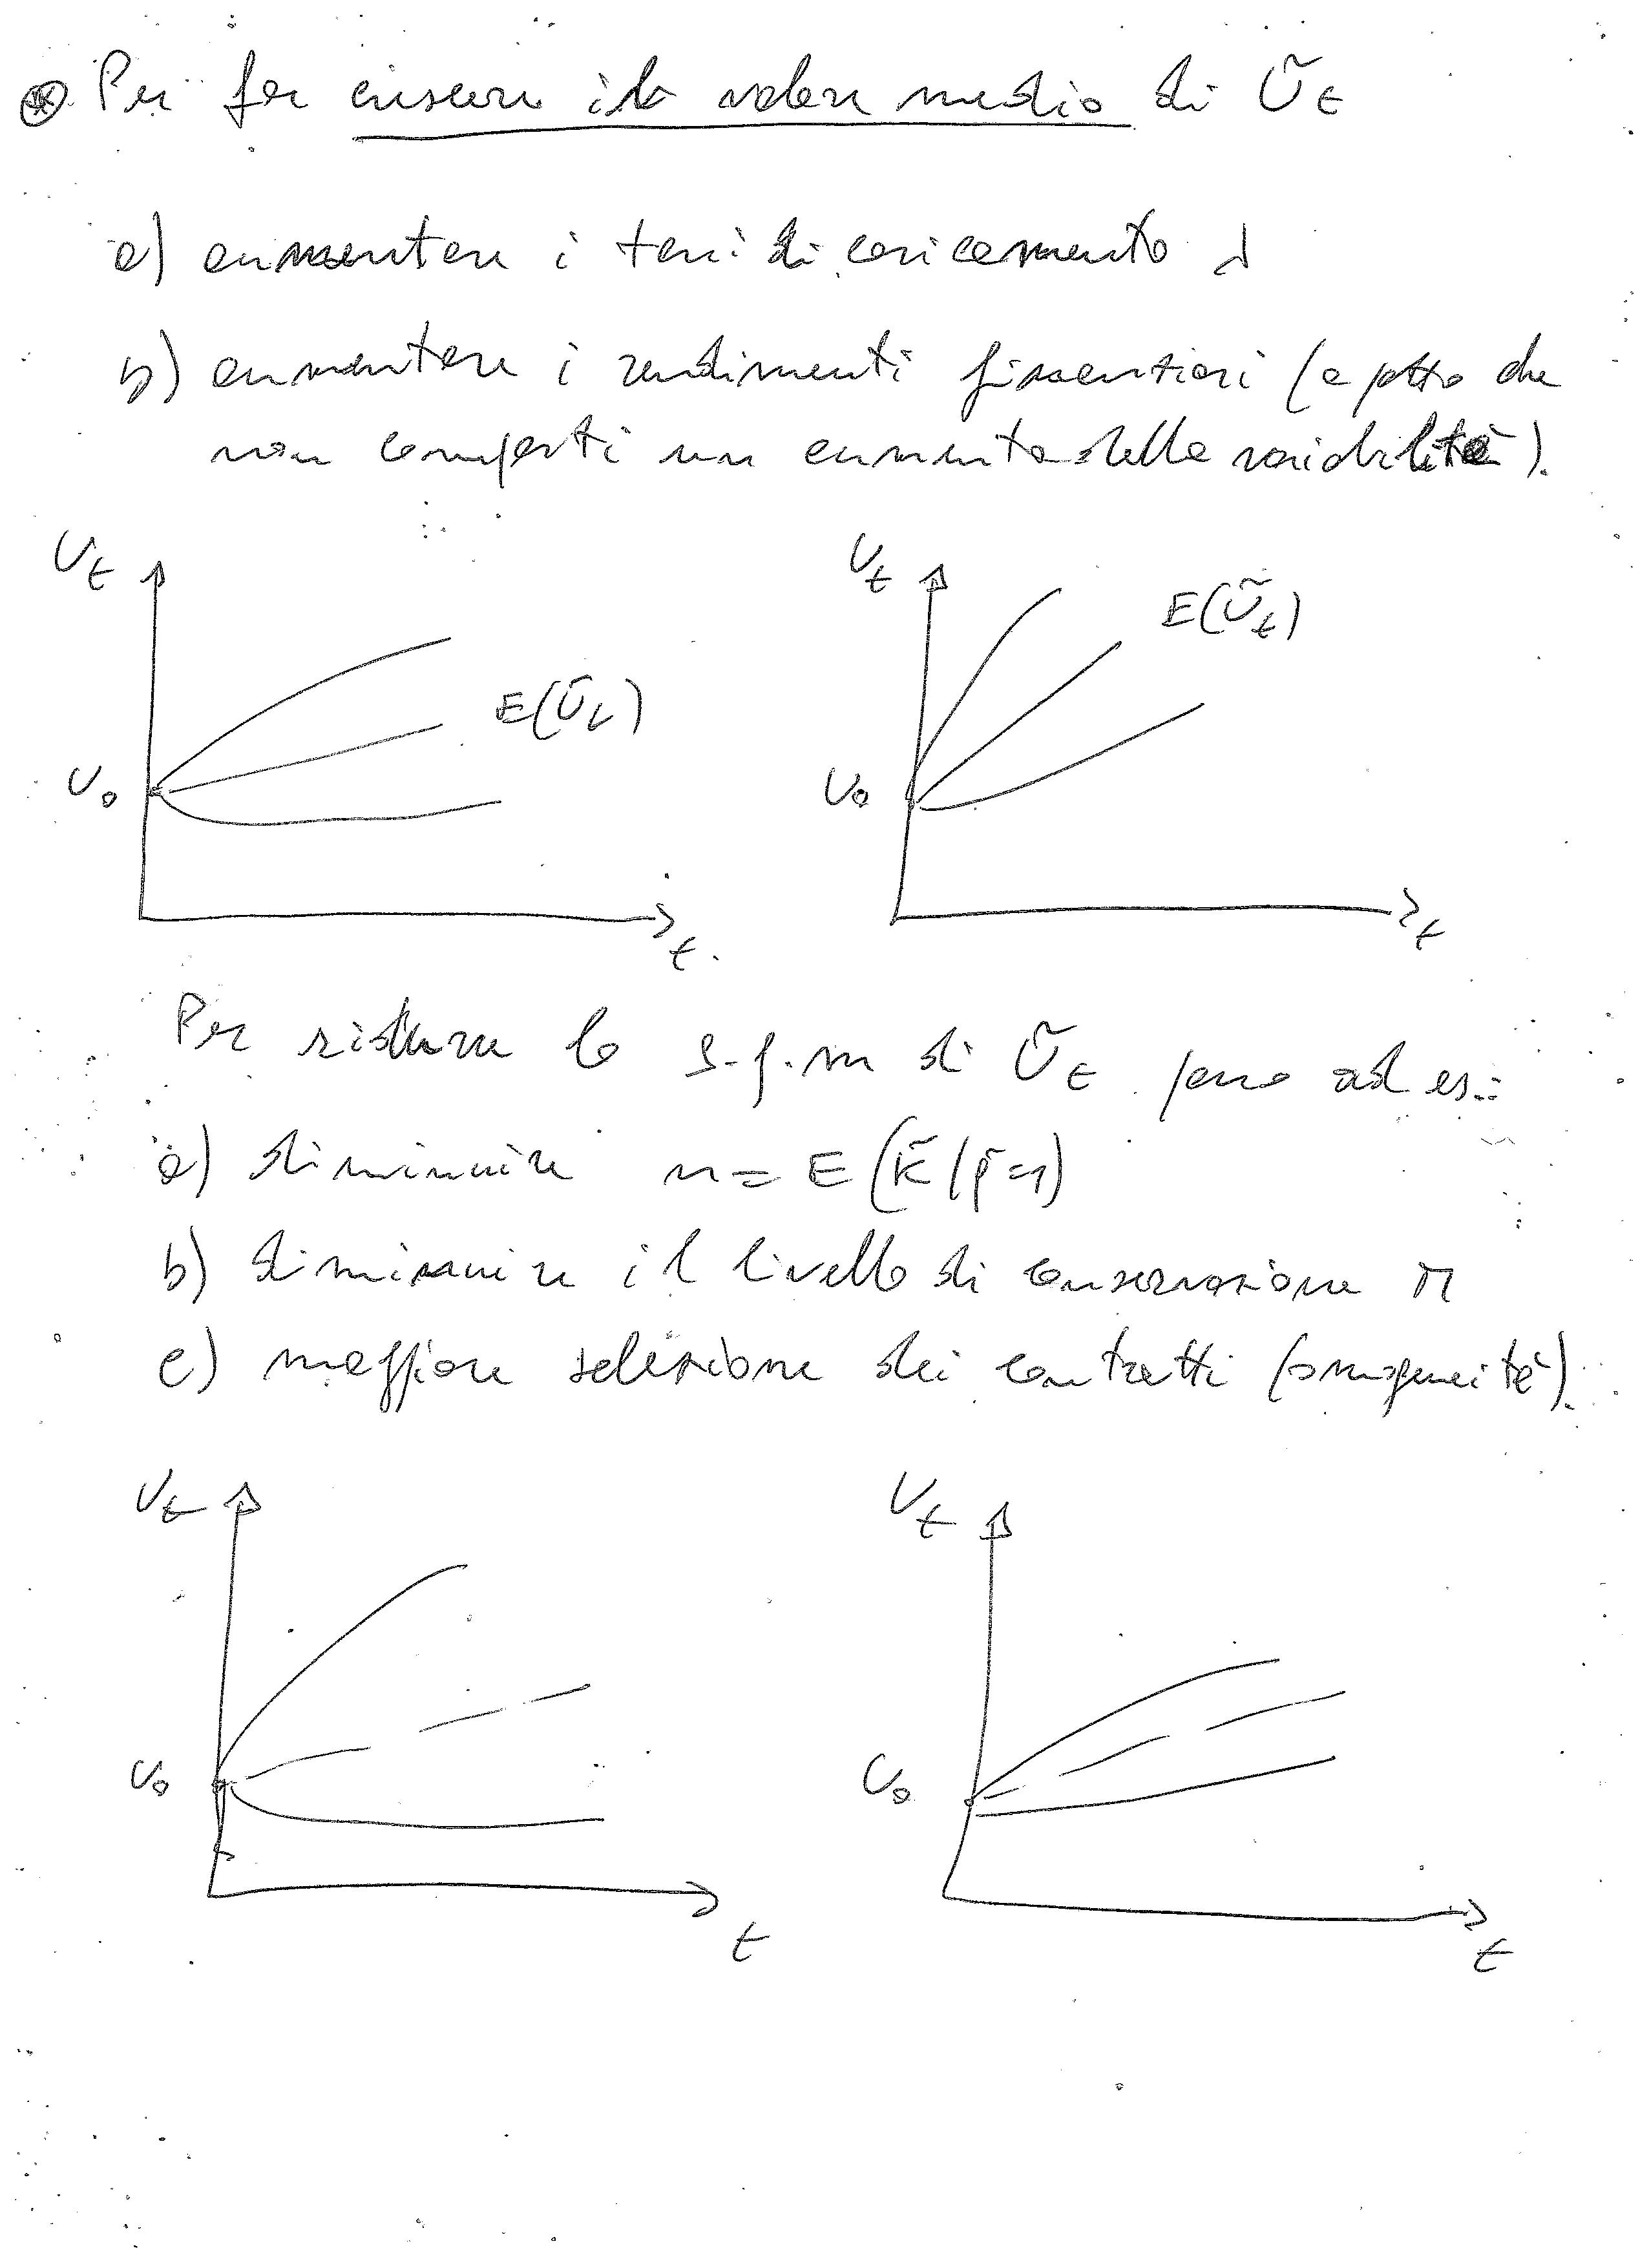 ⊛ Per far crescere il valore medio di Ũt
a) aumentare i tassi di caricamento λ
b) aumentare i rendimenti finanziari (a patto che
non comporti un aumento della variabilità).
Ut
E(Ũt)
U0
t
Ut
E(Ũt)
U0
t
Per ridurre lo s.q.m di Ũt posso ad es.:
a) diminuire n = E(K̃|ρ̃=1)
b) diminuire il livello di conservazione M
c) maggiore selezione dei contratti (omogeneità).
Ut
U0
t
Ut
U0
t